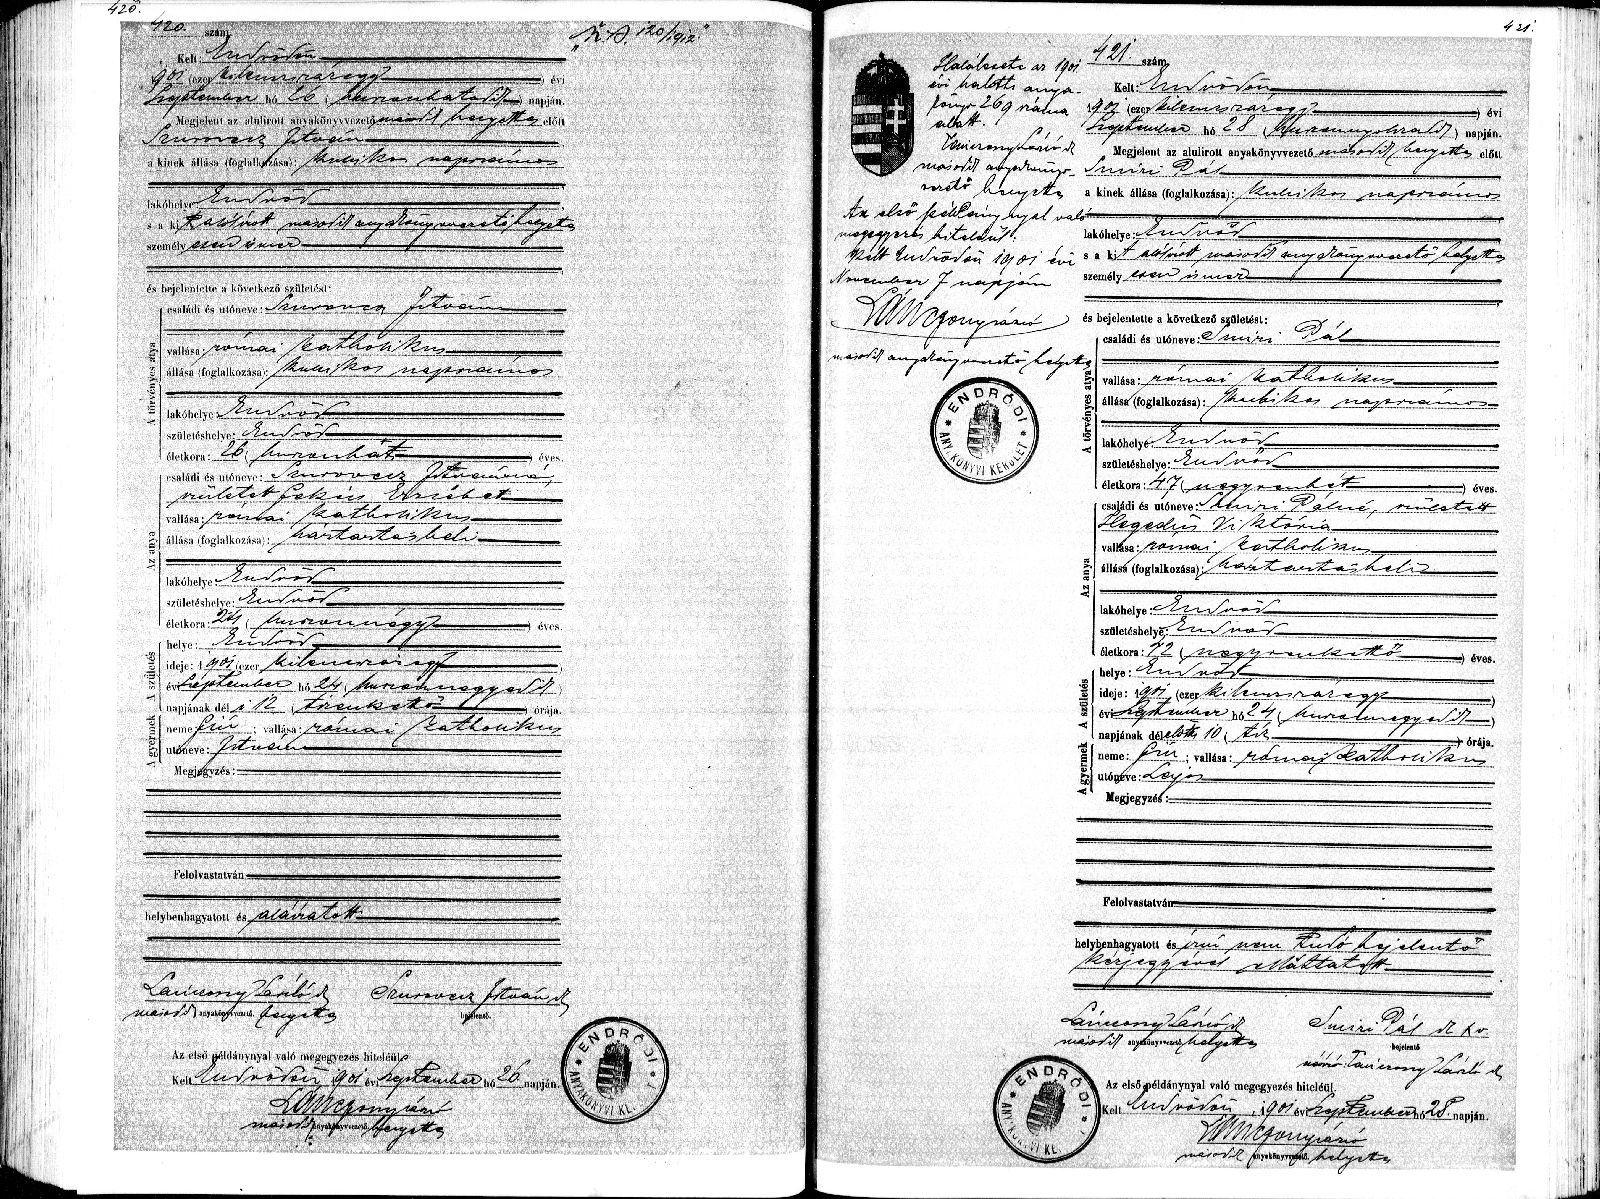 420.
420. szám.
"K.A. 120/1912"
Kelt: Endrődön
1901 (ezer kilencszázegy) évi
Szeptember hó 26 (huszonhatodik) napján.
Megjelent az alulirott anyakönyvvezető második helyettes előtt
Szurovecz István
a kinek állása (foglalkozása): kubikos napszámos
lakóhelye Endrőd
s a kit alólirott második anyakönyvvezető helyettes
személyesen ismer
és bejelentette a következő születést:
A törvényes atya
családi és utóneve: Szurovecz István
vallása: római katholikus
állása (foglalkozása): kubikos napszámos
lakóhelye: Endrőd
születéshelye: Endrőd
életkora: 26 (huszonhat) éves.
Az anya
családi és utóneve: Szurovecz Istvánné,
született Erzsébet
vallása: római katholikus
állása (foglalkozása): háztartásbeli
lakóhelye Endrőd
születéshelye: Endrőd
életkora: 24 (huszonnégy) éves.
A születés
helye: Endrőd
ideje: 1901 (ezer kilencszázegy)
évi szeptember hó 24 (huszonnegyedik)
napjának dél i 12 (tizenkettő) órája.
A gyermek
neme: fiú; vallása: római katholikus
utóneve: István
Megjegyzés:
Felolvastatván
helybenhagyatott és aláiratott
Lánczony László sk
Szurovecz István sk
második anyakönyvvezető. helyettes
bejelentő.
Az első példánynyal való megegyezés hiteléül.
Kelt Endrődön 1901 évi szeptember hó 26 napján.
második anyakönyvvezető. helyettes
ENDRŐDI ANYAKÖNYVI KE.
421.
421. szám.
Halálesete az 1901
évi halotti anya-
könyv 269 száma
alatt.
Lánczony László sk
második anyakönyv-
vezető helyettes
Az első példánynyal való
megegyezés hiteléül.
Kelt Endrődön 1901 évi
November 7 napján
második anyakönyvvezető helyettes
ENDRŐDI ANYAKÖNYVI KERÜLET
Kelt: Endrődön
1901 (ezer kilencszázegy) évi
Szeptember hó 28 (huszonnyolczadik) napján.
Megjelent az alulirott anyakönyvvezető második helyettes előtt
Smiri Pál
a kinek állása (foglalkozása): kubikos napszámos
lakóhelye: Endrőd
s a kit alólirott második anyakönyvvezető helyettes
személyesen ismer
és bejelentette a következő születést:
A törvényes atya
családi és utóneve: Smiri Pál
vallása: római katholikus
állása (foglalkozása): kubikos napszámos
lakóhelye: Endrőd
születéshelye: Endrőd
életkora: 47 (negyvenhét) éves.
Az anya
családi és utóneve: Smiri Pálné, született
Hegedüs Viktória
vallása: római katholikus
állása (foglalkozása): háztartásbeli
lakóhelye: Endrőd
születéshelye: Endrőd
életkora: 42 (negyvenkettő) éves.
A születés
helye: Endrőd
ideje: 1901 (ezer kilencszázegy)
évi szeptember hó 24 (huszonnegyedik)
napjának dél előtti 10 (tiz) órája.
A gyermek
neme: fiú; vallása: római katholikus
utóneve: Lajos
Megjegyzés:
Felolvastatván
helybenhagyatott és irni nem tudó bejelentő
kézjegyével elláttatott
Lánczony László sk
Smiri Pál sk kv.
második anyakönyvvezető. helyettes
bejelentő
Lánczony László sk
Az első példánynyal való megegyezés hiteléül.
Kelt Endrődön, 1901 évi szeptember hó 28 napján.
második anyakönyvvezető. helyettes
ENDRŐDI ANYAKÖNYVI KE.